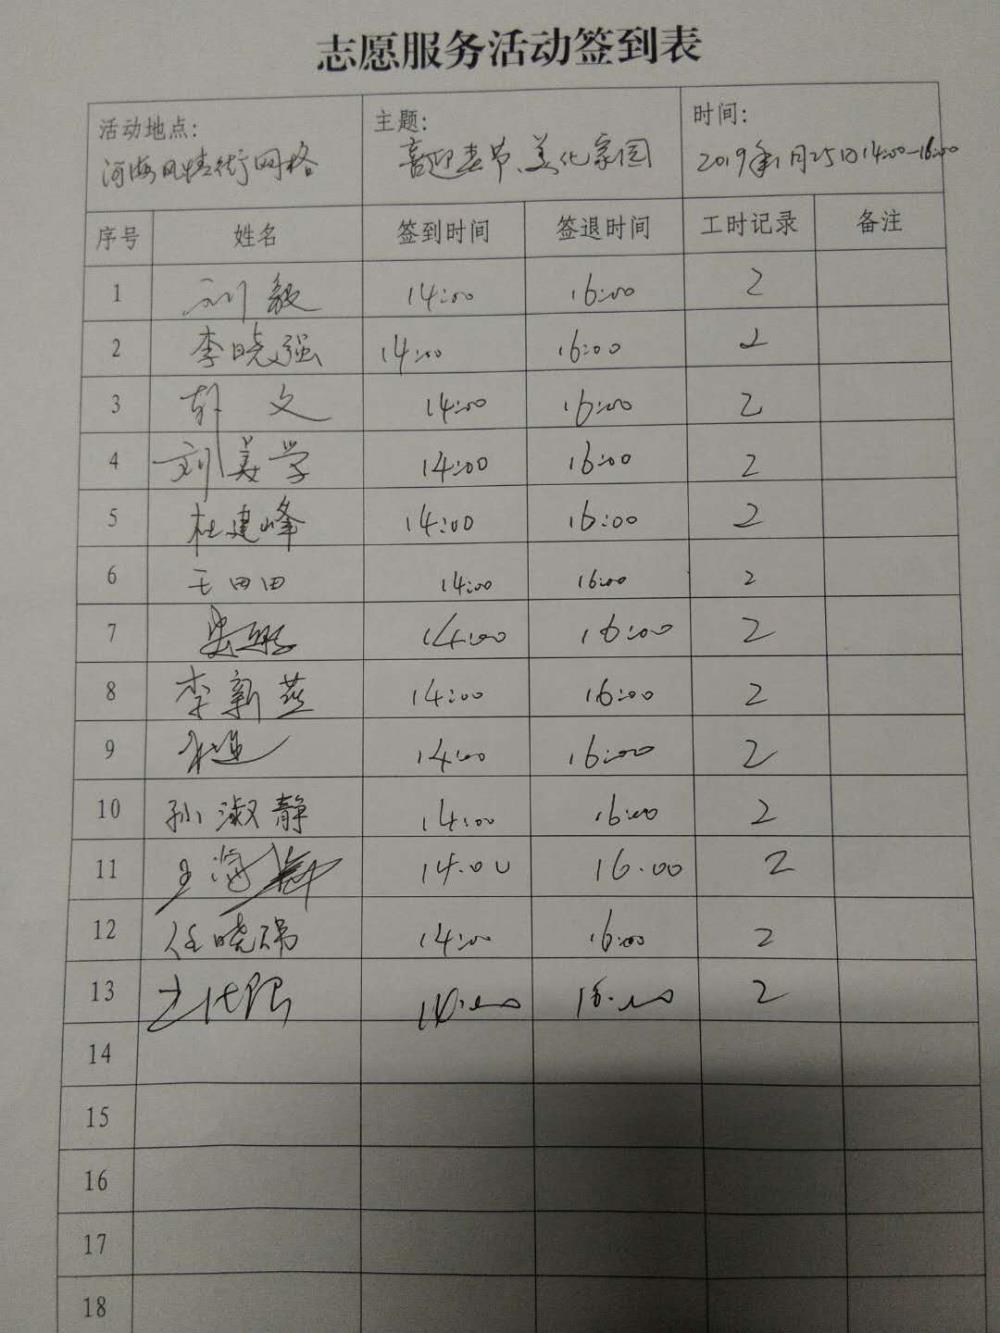 志愿服务活动签到表
活动地点: 主题: 时间:
河海风情街网格 喜迎春节、美化家园 2019年1月25日14:00-16:00
序号 姓名 签到时间 签退时间 工时记录 备注
1 刘毅 14:00 16:00 2
2 李晓强 14:00 16:00 2
3 文 14:00 16:00 2
4 刘美学 14:00 16:00 2
5 杜建峰 14:00 16:00 2
6 王田田 14:00 16:00 2
7 14:00 16:00 2
8 李新燕 14:00 16:00 2
9 14:00 16:00 2
10 孙淑静 14:00 16:00 2
11 王海 14.00 16.00 2
12 任晓瑞 14:00 16:00 2
13 14:00 16:00 2
14
15
16
17
18